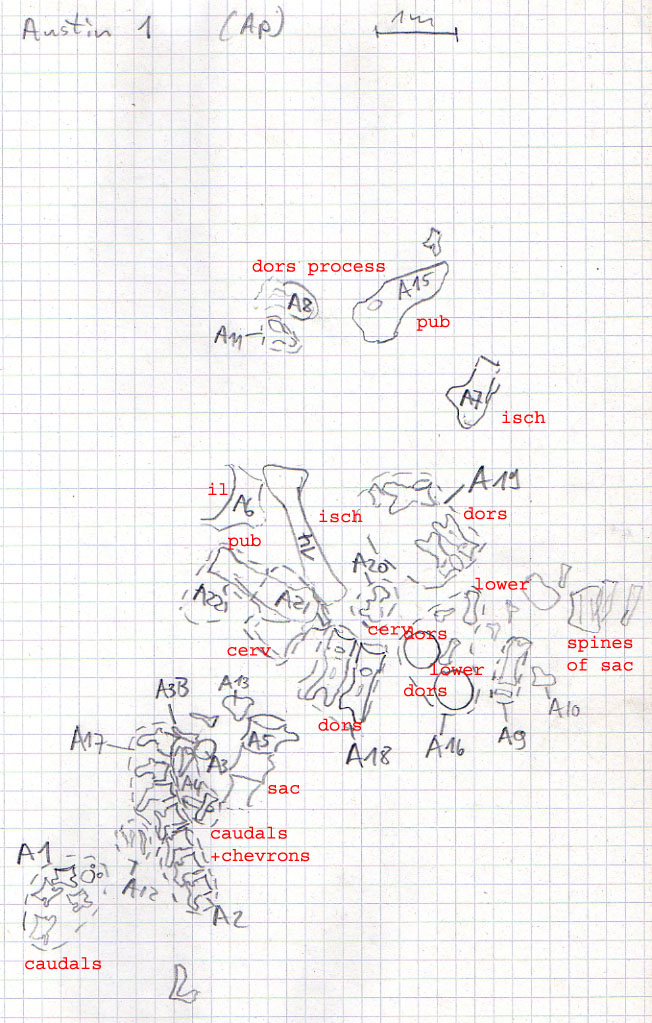 Austin 1 (Ap) 1m
dors process
A8
A15
A11
pub
A7
isch
il
A6
isch
A19
dors
pub
A20
A22
A21
lower
cerv
cerv
dors
spines
of sac
lower
dors
A13
A3B
dors
A10
A17
A5
A18
A16
A9
A3
A4
sac
caudals
+chevrons
A1
A12
A2
caudals